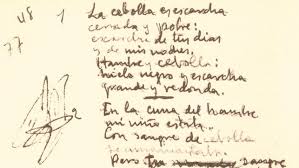 48 1
77
La cebolla es escarcha
cerrada y pobre:
escarcha de tus días
y de mis noches.
Hambre y cebolla:
hielo negro y escarcha
grande y redonda.
2
En la cuna del hambre
mi niño estaba.
Con sangre de cebolla
Pero tu sangre